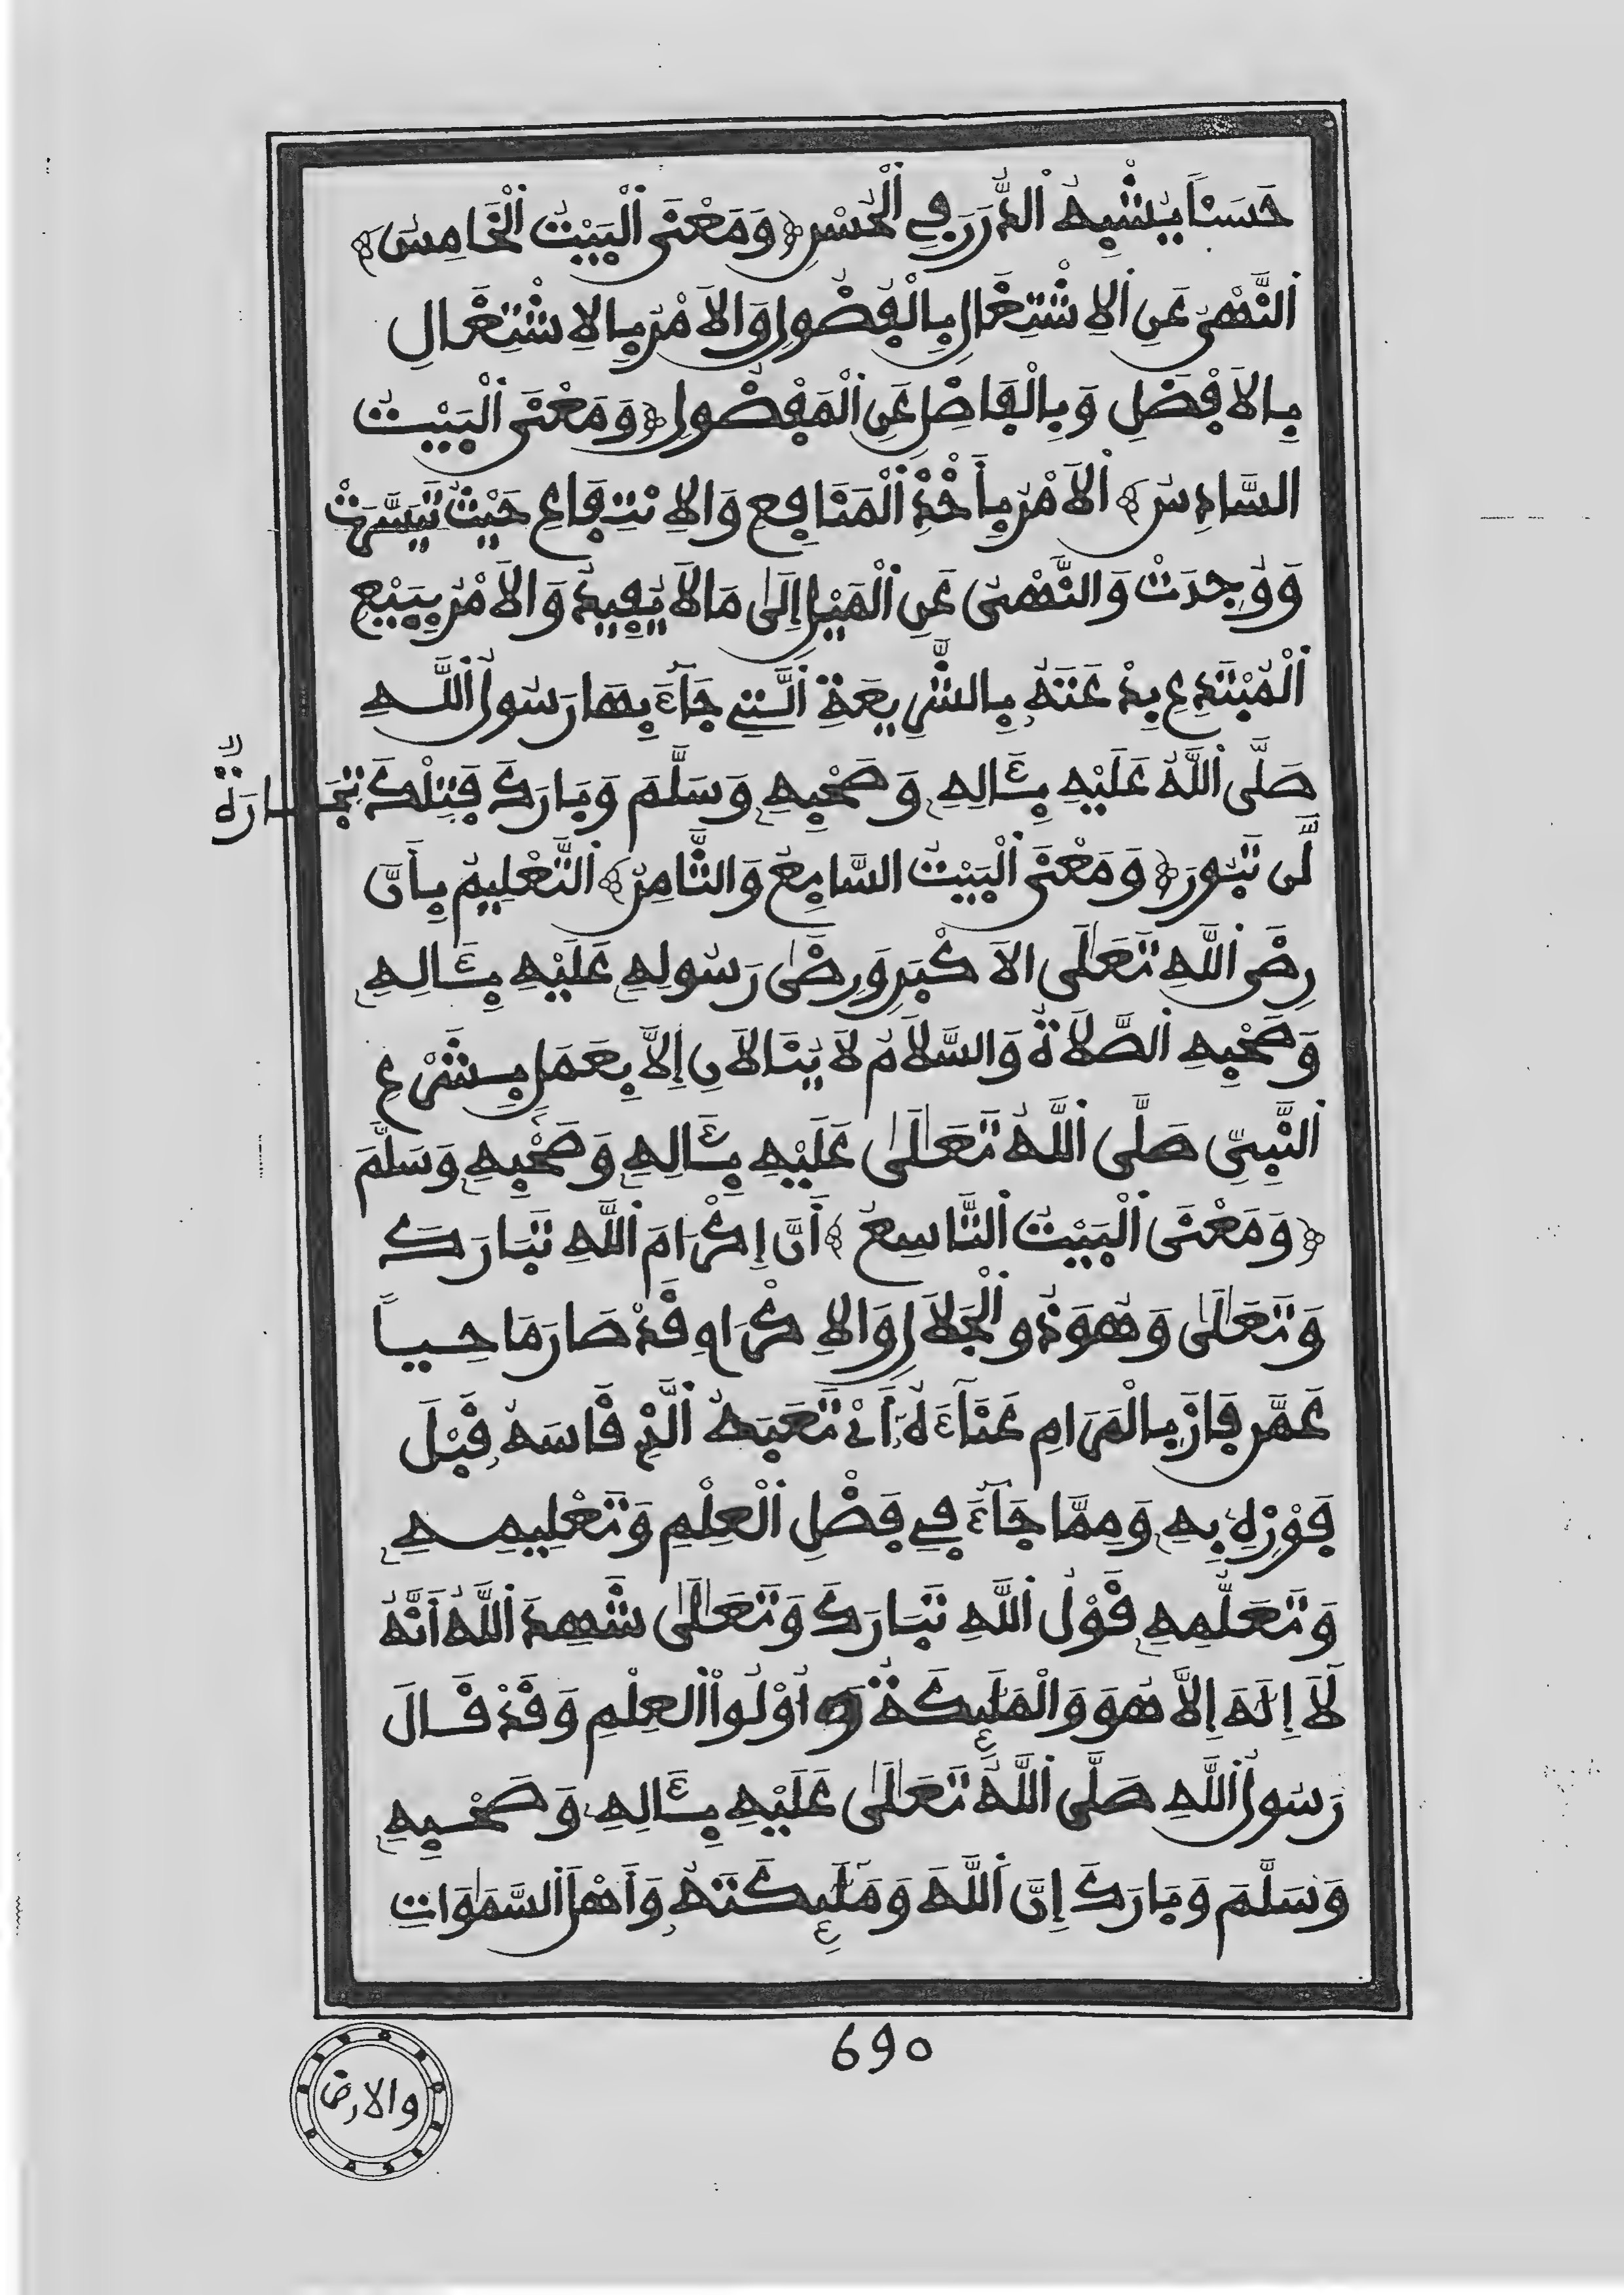 حَسَناً يُشْبِهُ الدُّرَرَ فِي الْحُسْنِ ﴿وَمَعْنَى الْبَيْتِ الْخَامِسِ﴾
النَّهْيُ عَنِ الِاشْتِغَالِ بِالْفُضُولِ وَالْأَمْرُ بِالِاشْتِغَالِ
بِالْأَفْضَلِ وَبِالْفَاضِلِ عَنِ الْمَفْضُولِ ﴿وَمَعْنَى الْبَيْتِ
السَّادِسِ﴾ الْأَمْرُ بِأَخْذِ الْمَنَافِعِ وَالِانْتِفَاعِ حَيْثُ تَيَسَّرَتْ
وَوُجِدَتْ وَالنَّهْيُ عَنِ الْمَيْلِ إِلَى مَا لَا يُفِيدُ وَالْأَمْرُ بِبَيْعِ
الْمُبْتَدِعِ بِدْعَتَهُ بِالشَّرِيعَةِ الَّتِي جَاءَ بِهَا رَسُولُ اللَّهِ
صَلَّى اللَّهُ عَلَيْهِ بِـَٔالِهِ وَصَحْبِهِ وَسَلَّمَ وَبَارَكَ فَتِلْكَ تِجَارَةٌ
لَّن تَبُورَ ﴿وَمَعْنَى الْبَيْتِ السَّابِعِ وَالثَّامِنِ﴾ التَّعْلِيمُ بِأَنَّ
رِضَى اللَّهِ تَعَالَى الْأَكْبَرِ وَرِضَى رَسُولِهِ عَلَيْهِ بِـَٔالِهِ
وَصَحْبِهِ الصَّلَاةُ وَالسَّلَامُ لَا يُنَالَانِ إِلَّا بِعَمَلٍ بِشَرْعِ
النَّبِيِّ صَلَّى اللَّهُ تَعَالَى عَلَيْهِ بِـَٔالِهِ وَصَحْبِهِ وَسَلَّمَ
﴿وَمَعْنَى الْبَيْتِ التَّاسِعِ﴾ أَنَّ إِكْرَامَ اللَّهِ تَبَارَكَ
وَتَعَالَى وَهُوَ ذُو الْجَلَالِ وَالْإِكْرَامِ قَدْ صَارَ مَاحِياً
عَمَّن فَازَ بِالْمَرَامِ عَنَاءَهُ أَيْ تَعَبَهُ الَّذِي قَاسَهُ قَبْلَ
فَوْزِهِ بِهِ وَمِمَّا جَاءَ فِي فَضْلِ الْعِلْمِ وَتَعْلِيمِهِ
وَتَعَلُّمِهِ قَوْلُ اللَّهِ تَبَارَكَ وَتَعَالَى شَهِدَ اللَّهُ أَنَّهُ
لَا إِلَهَ إِلَّا هُوَ وَالْمَلَٰئِكَةُ وَأُوْلُواْ الْعِلْمِ وَقَدْ قَالَ
رَسُولُ اللَّهِ صَلَّى اللَّهُ تَعَالَى عَلَيْهِ بِـَٔالِهِ وَصَحْبِهِ
وَسَلَّمَ وَبَارَكَ إِنَّ اللَّهَ وَمَلَٰئِكَتَهُ وَأَهْلَ السَّمَوَاتِ
690
والارض